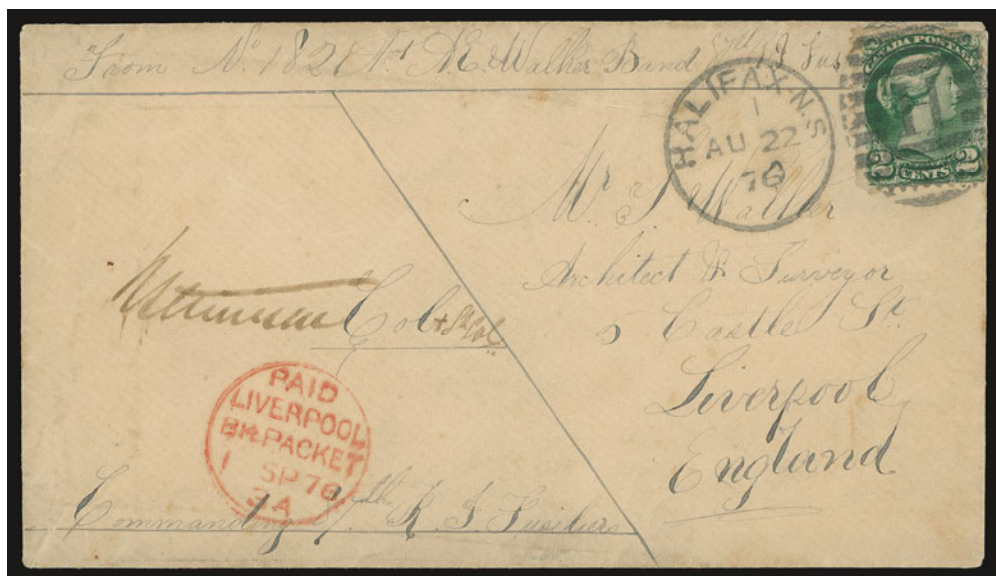 From No. 1821 M. E. Walker Band 87th R I Fus
CANADA POSTAGE
2 CENTS 2
1
HALIFAX N.S
1
AU 22
76
Mr J. Walker
Architect & Surveyor
5 Castle St.
Liverpool
England
Col
PAID
LIVERPOOL
BR. PACKET
1 SP 76
3A
Commanding 87th R. I. Fusiliers